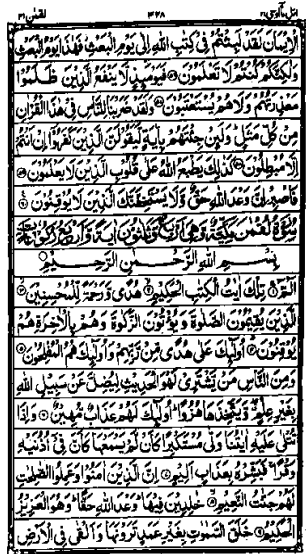 اتل مآاوحی ۲۱ ۴۲۸ لقمٰن ۳۱
الْاِیْمَانَ لَقَدْ لَبِثْتُمْ فِیْ كِتٰبِ اللّٰهِ اِلٰى یَوْمِ الْبَعْثِ فَهٰذَا یَوْمُ الْبَعْثِ
وَلٰكِنَّكُمْ كُنْتُمْ لَا تَعْلَمُوْنَ فَیَوْمَئِذٍ لَّا یَنْفَعُ الَّذِیْنَ ظَلَمُوْا
مَعْذِرَتُهُمْ وَلَا هُمْ یُسْتَعْتَبُوْنَ وَلَقَدْ ضَرَبْنَا لِلنَّاسِ فِیْ هٰذَا الْقُرْاٰنِ
مِنْ كُلِّ مَثَلٍ وَلَئِنْ جِئْتَهُمْ بِاٰیَةٍ لَّیَقُوْلَنَّ الَّذِیْنَ كَفَرُوْۤا اِنْ اَنْتُمْ
اِلَّا مُبْطِلُوْنَ كَذٰلِكَ یَطْبَعُ اللّٰهُ عَلٰى قُلُوْبِ الَّذِیْنَ لَا یَعْلَمُوْنَ
فَاصْبِرْ اِنَّ وَعْدَ اللّٰهِ حَقٌّ وَّلَا یَسْتَخِفَّنَّكَ الَّذِیْنَ لَا یُوْقِنُوْنَ
سُوْرَةُ لُقْمٰنَ مَكِّیَّةٌ وَّهِیَ اَرْبَعٌ وَّثَلٰثُوْنَ اٰیَةً وَّاَرْبَعُ رُكُوْعَاتٍ
بِسْمِ اللّٰهِ الرَّحْمٰنِ الرَّحِیْمِ
الٓمّٓ تِلْكَ اٰیٰتُ الْكِتٰبِ الْحَكِیْمِ هُدًى وَّرَحْمَةً لِّلْمُحْسِنِیْنَ
الَّذِیْنَ یُقِیْمُوْنَ الصَّلٰوةَ وَیُؤْتُوْنَ الزَّكٰوةَ وَهُمْ بِالْاٰخِرَةِ هُمْ
یُوْقِنُوْنَ اُولٰٓئِكَ عَلٰى هُدًى مِّنْ رَّبِّهِمْ وَاُولٰٓئِكَ هُمُ الْمُفْلِحُوْنَ
وَمِنَ النَّاسِ مَنْ یَّشْتَرِیْ لَهْوَ الْحَدِیْثِ لِیُضِلَّ عَنْ سَبِیْلِ اللّٰهِ
بِغَیْرِ عِلْمٍ وَّیَتَّخِذَهَا هُزُوًا اُولٰٓئِكَ لَهُمْ عَذَابٌ مُّهِیْنٌ وَاِذَا
تُتْلٰى عَلَیْهِ اٰیٰتُنَا وَلّٰى مُسْتَكْبِرًا كَاَنْ لَّمْ یَسْمَعْهَا كَاَنَّ فِیْۤ اُذُنَیْهِ
وَقْرًا فَبَشِّرْهُ بِعَذَابٍ اَلِیْمٍ اِنَّ الَّذِیْنَ اٰمَنُوْا وَعَمِلُوا الصّٰلِحٰتِ
لَهُمْ جَنّٰتُ النَّعِیْمِ خٰلِدِیْنَ فِیْهَا وَعْدَ اللّٰهِ حَقًّا وَهُوَ الْعَزِیْزُ
الْحَكِیْمُ خَلَقَ السَّمٰوٰتِ بِغَیْرِ عَمَدٍ تَرَوْنَهَا وَاَلْقٰى فِی الْاَرْضِ